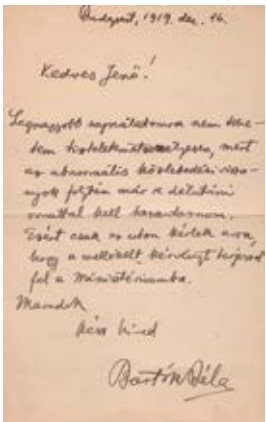 Budapest, 1919. dec. 16.
Kedves Jenő!
Legnagyobb sajnálatomra nem tehe-
tem tiszteletemet, mert
az abnormális közlekedési viszo-
nyok folytán már a délutáni
vonattal kell hazautaznom.
Ezért csak ez uton kérlek arra,
hogy a mellékelt kérvényt
fel a Minisztériumba.
Maradok
híved
Bartók Béla